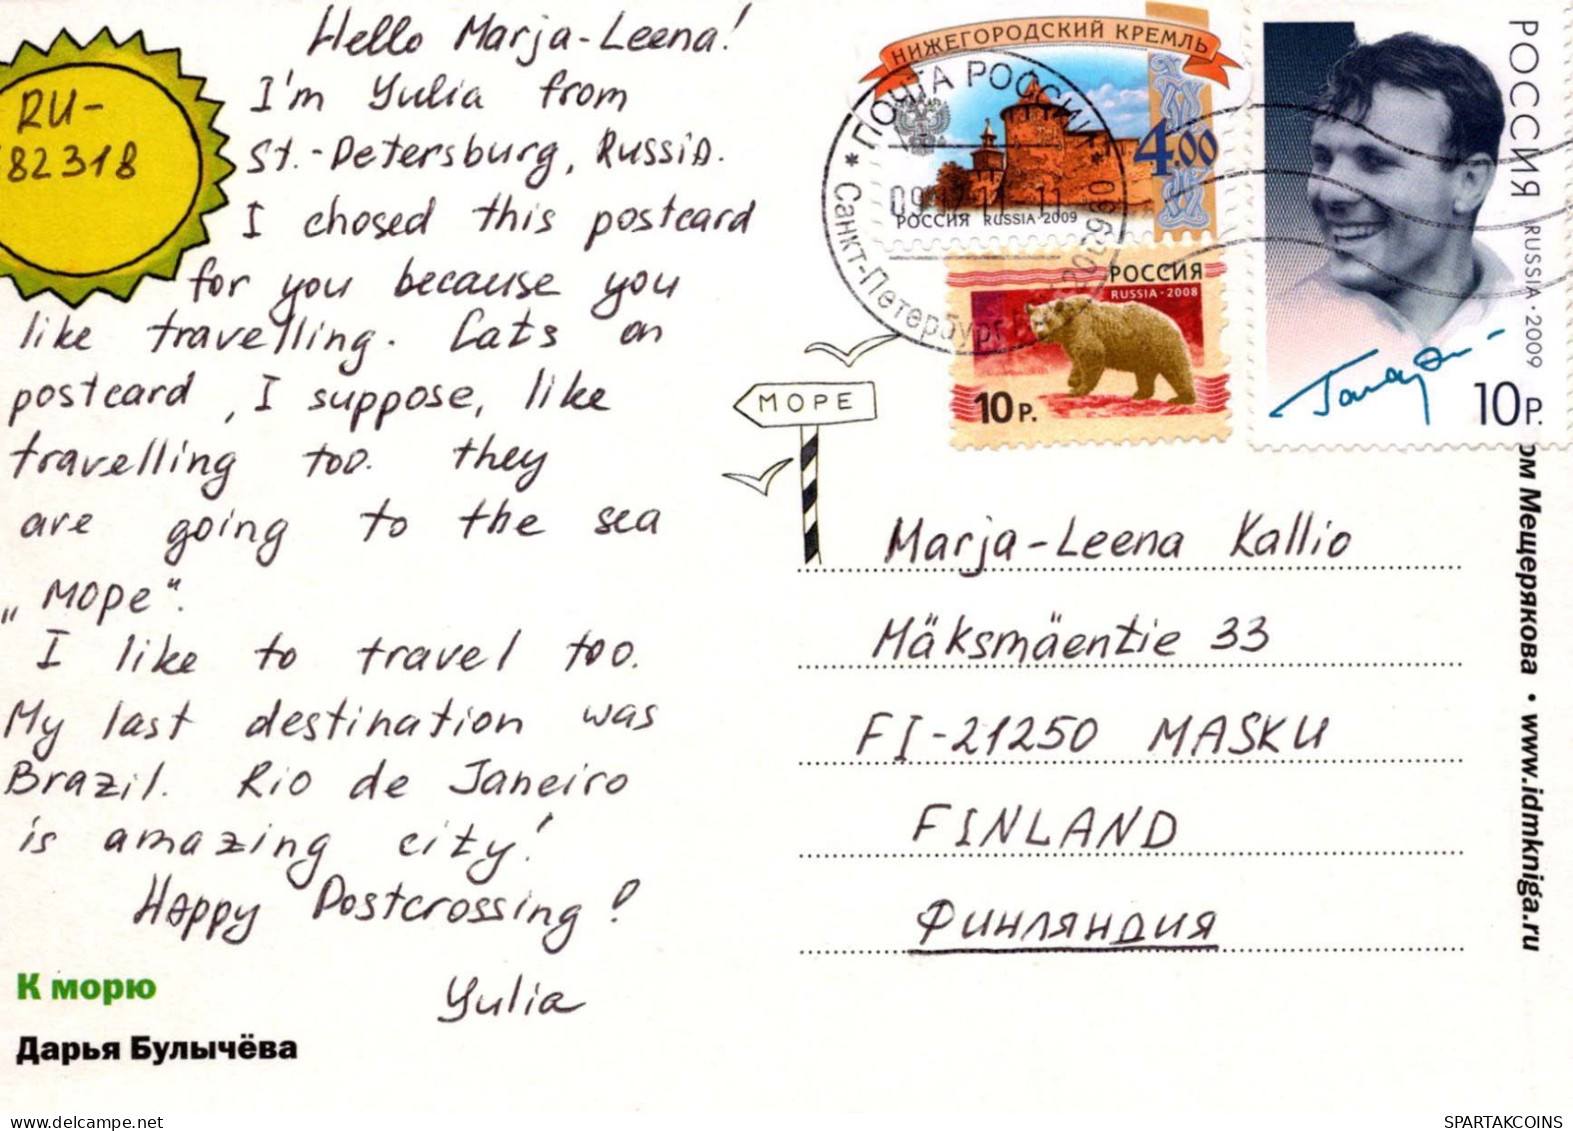 Hello Marja-Leena!
I'm Yulia from
St.-Petersburg, Russia.
I chosed this postcard
for you because you
like travelling. Cats on
postcard, I suppose, like
travelling too. they
are going to the sea
„море".
I like to travel too.
My last destination was
Brazil. Rio de Janeiro
is amazing city!
Happy Postcrossing!
Yulia
RU-
82318
К морю
Дарья Булычёва
НИЖЕГОРОДСКИЙ КРЕМЛЬ
4.00
РОССИЯ RUSSIA·2009
ПОЧТА РОССИИ
Санкт-Петербург
РОССИЯ
RUSSIA·2008
10 Р.
РОССИЯ RUSSIA·2009
10 Р.
МОРЕ
Marja-Leena Kallio
Mäksmäentie 33
FI-21250 MASKU
FINLAND
Финляндия
ом Мещерякова • www.idmkniga.ru
www.delcampe.net
SPARTAKCOINS